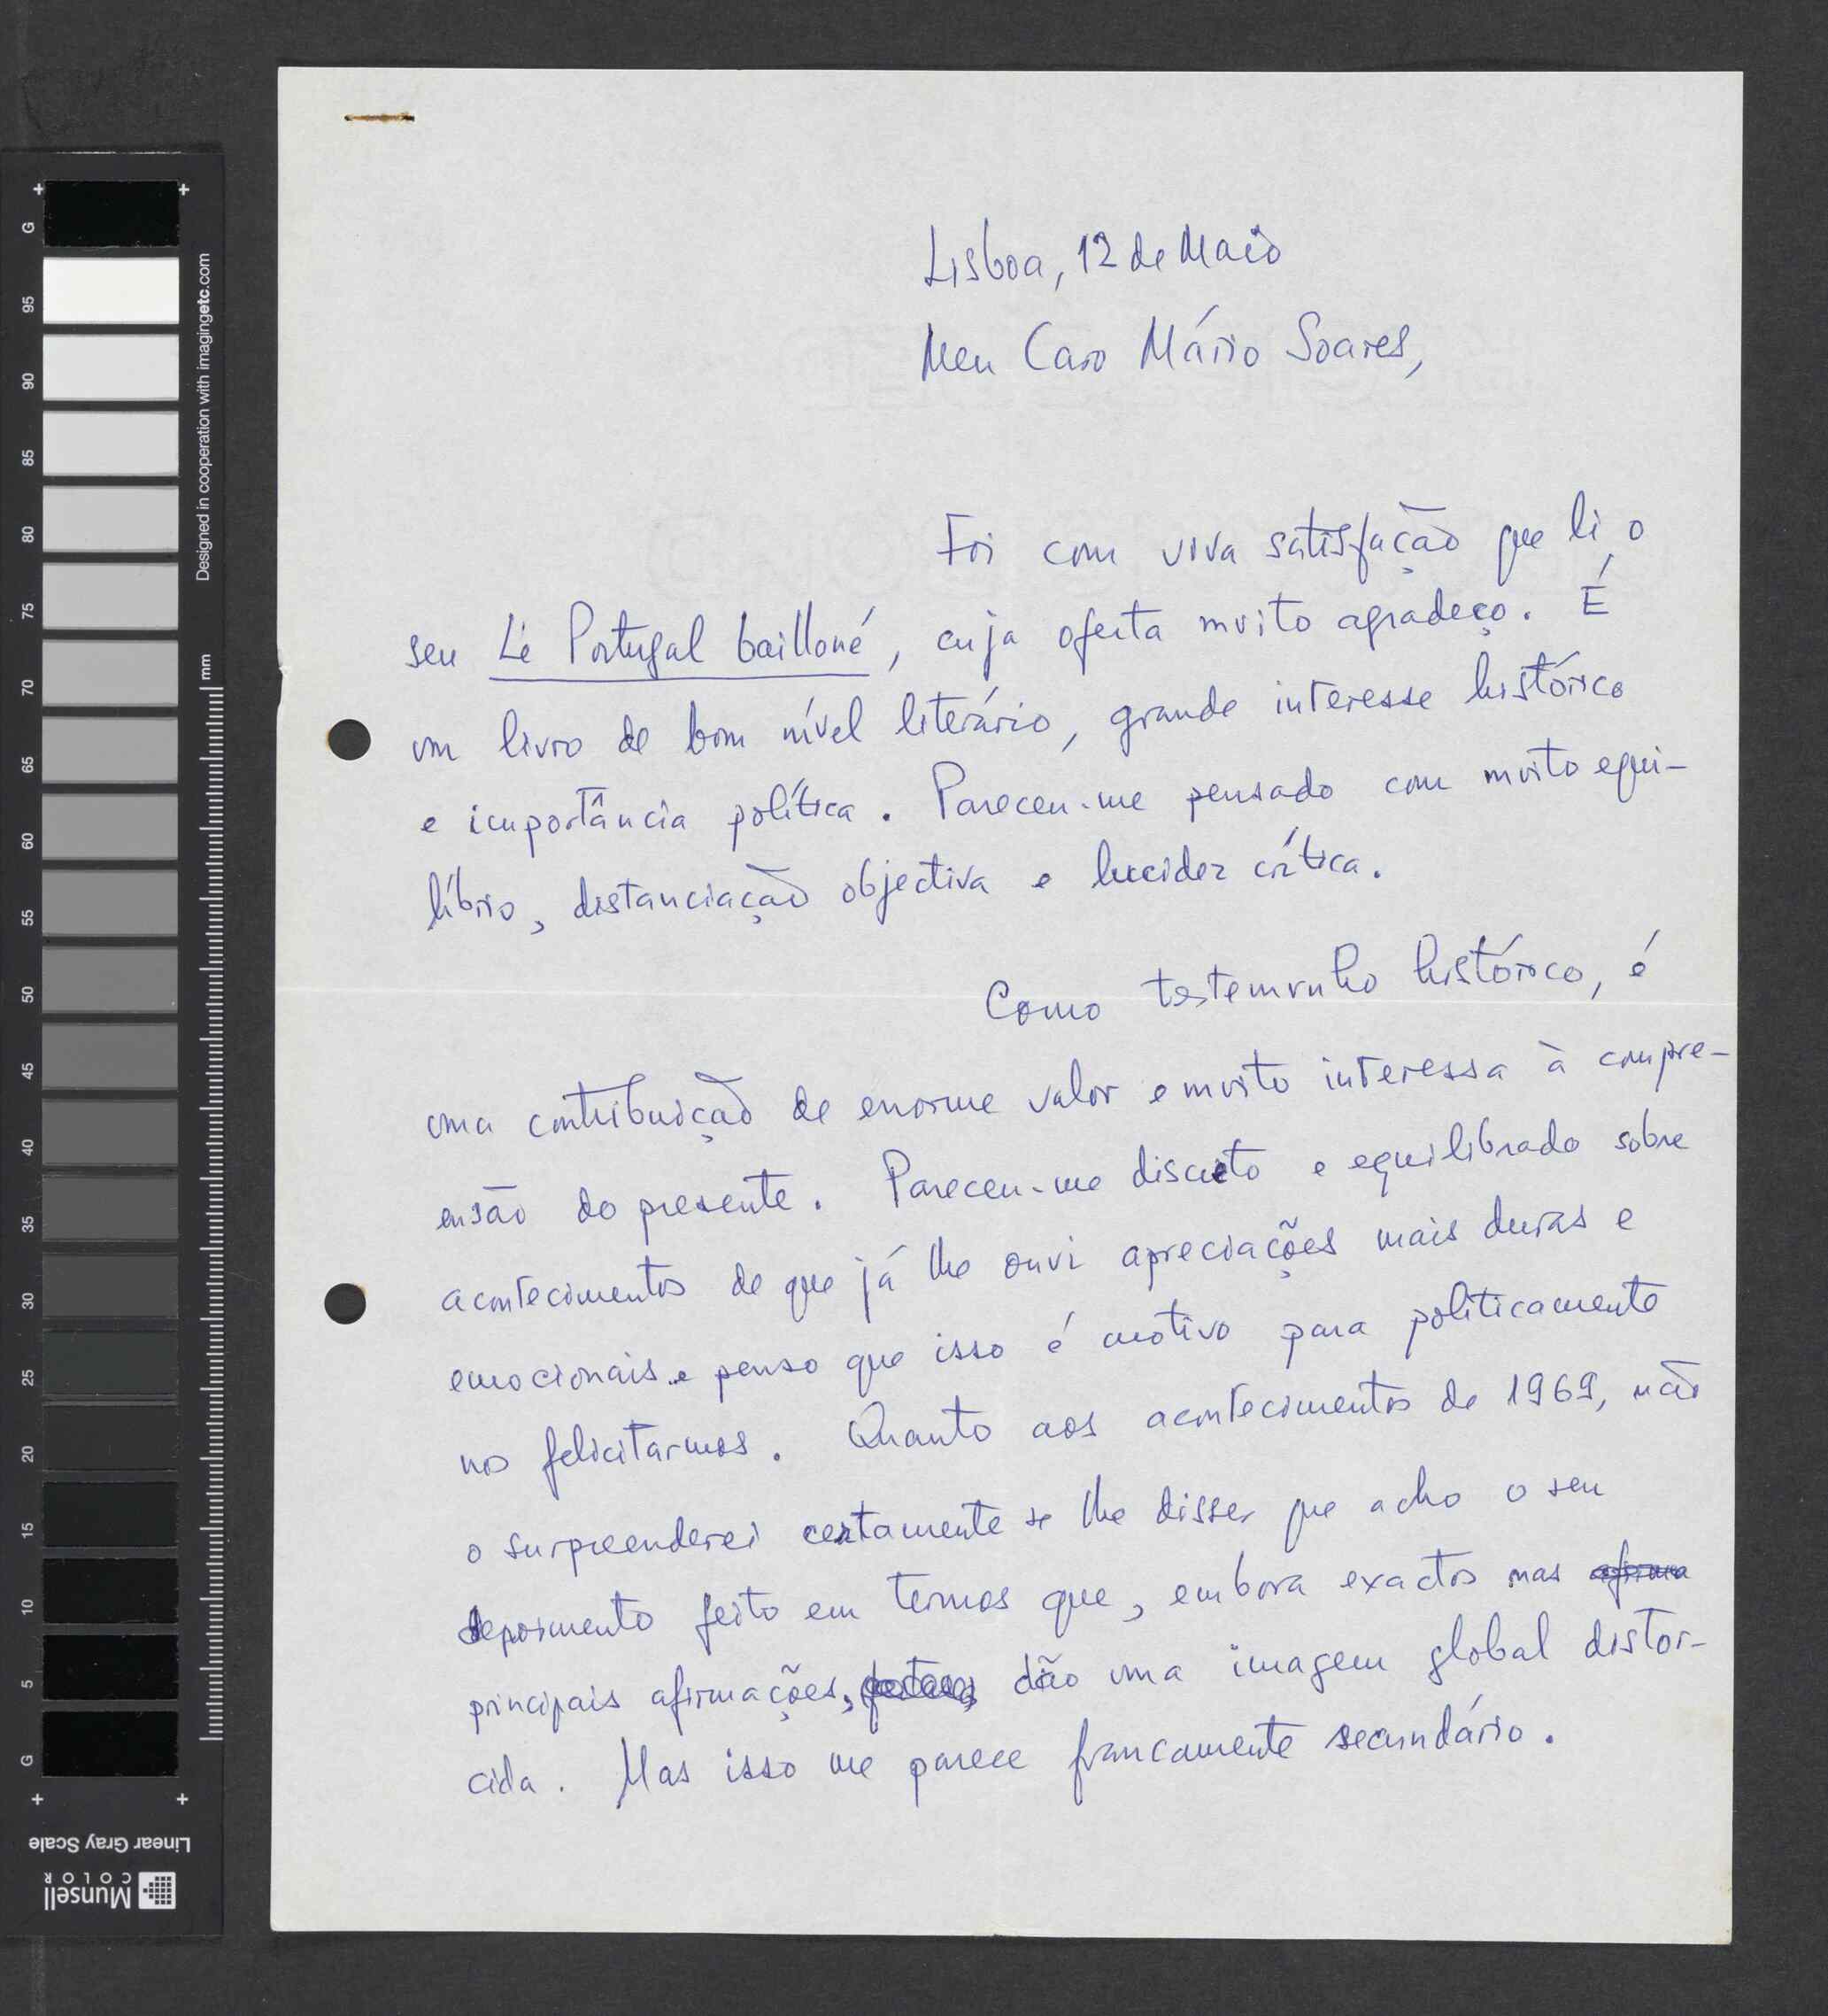 Lisboa, 12 de Maio
Meu Caro Mário Soares,
Foi com viva satisfação que li o
seu Le Portugal bailloné, cuja oferta muito agradeço. É
um livro de bom nível literário, grande interesse histórico
e importância política. Pareceu-me pensado com muito equi-
líbrio, distanciação objectiva e lucidez crítica.
Como testemunho histórico, é
uma contribuição de enorme valor e muito interessa à compre-
ensão do presente. Pareceu-me discreto e equilibrado sobre
acontecimentos de que já lhe ouvi apreciações mais duras e
emocionais e penso que isso é motivo para politicamente
nos felicitarmos. Quanto aos acontecimentos de 1969, não
o surpreenderei certamente se lhe disser que acho o seu
depoimento feito em termos que, embora exactos nas
principais afirmações, dão uma imagem global distor-
cida. Mas isso me parece francamente secundário.
G
95
90
85
80
75
70
65
60
55
50
45
40
35
30
25
20
15
10
5
G
mm
Designed in cooperation with imagingetc.com
Linear Gray Scale
Munsell
COLOR